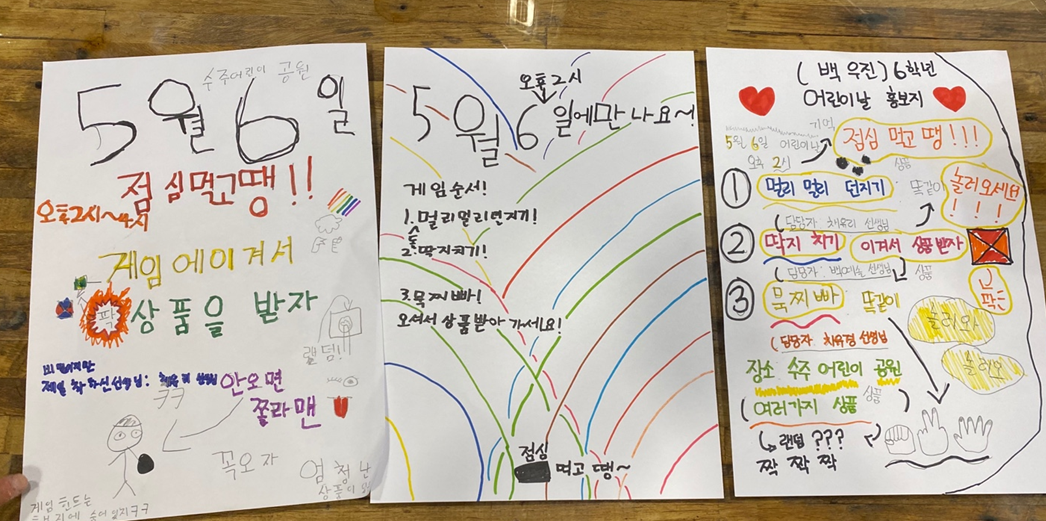 수주어린이 공원
5월 6일
점심먹고땡!!
오후2시~
게임에이겨서
팍
상품을 받자
랜덤!!
비밀이지만
제일 착하신선생님:
ㅋㅋ
안오면
쫄라맨
꼭오자
엄청난
상품이
게임 힌트는
오후2시
5월 6일에만나요~!
게임순서!
1. 멀리멀리던지기!
2. 딱지치기!
3. 묵찌빠!
오셔서 상품받아 가세요!
점심
먹고 땡~
(백우진) 6학년
어린이날 홍보지
기억
5월 6일 어린이날
오후 2시
점심 먹고 땡!!!
상품
① 멀리 멀리 던지기 똑같이
놀러오세요
!!!
(담당자 채유리 선생님
② 딱지 치기 이겨서 상품받자
(담당자: 백예슬 선생님
상품
③ 묵찌빠 똑같이
놀러와
(담당자 선생님
놀러오
장소 수주 어린이 공원
(여러가지 상품
상품
랜덤 ???
짝 짝 짝